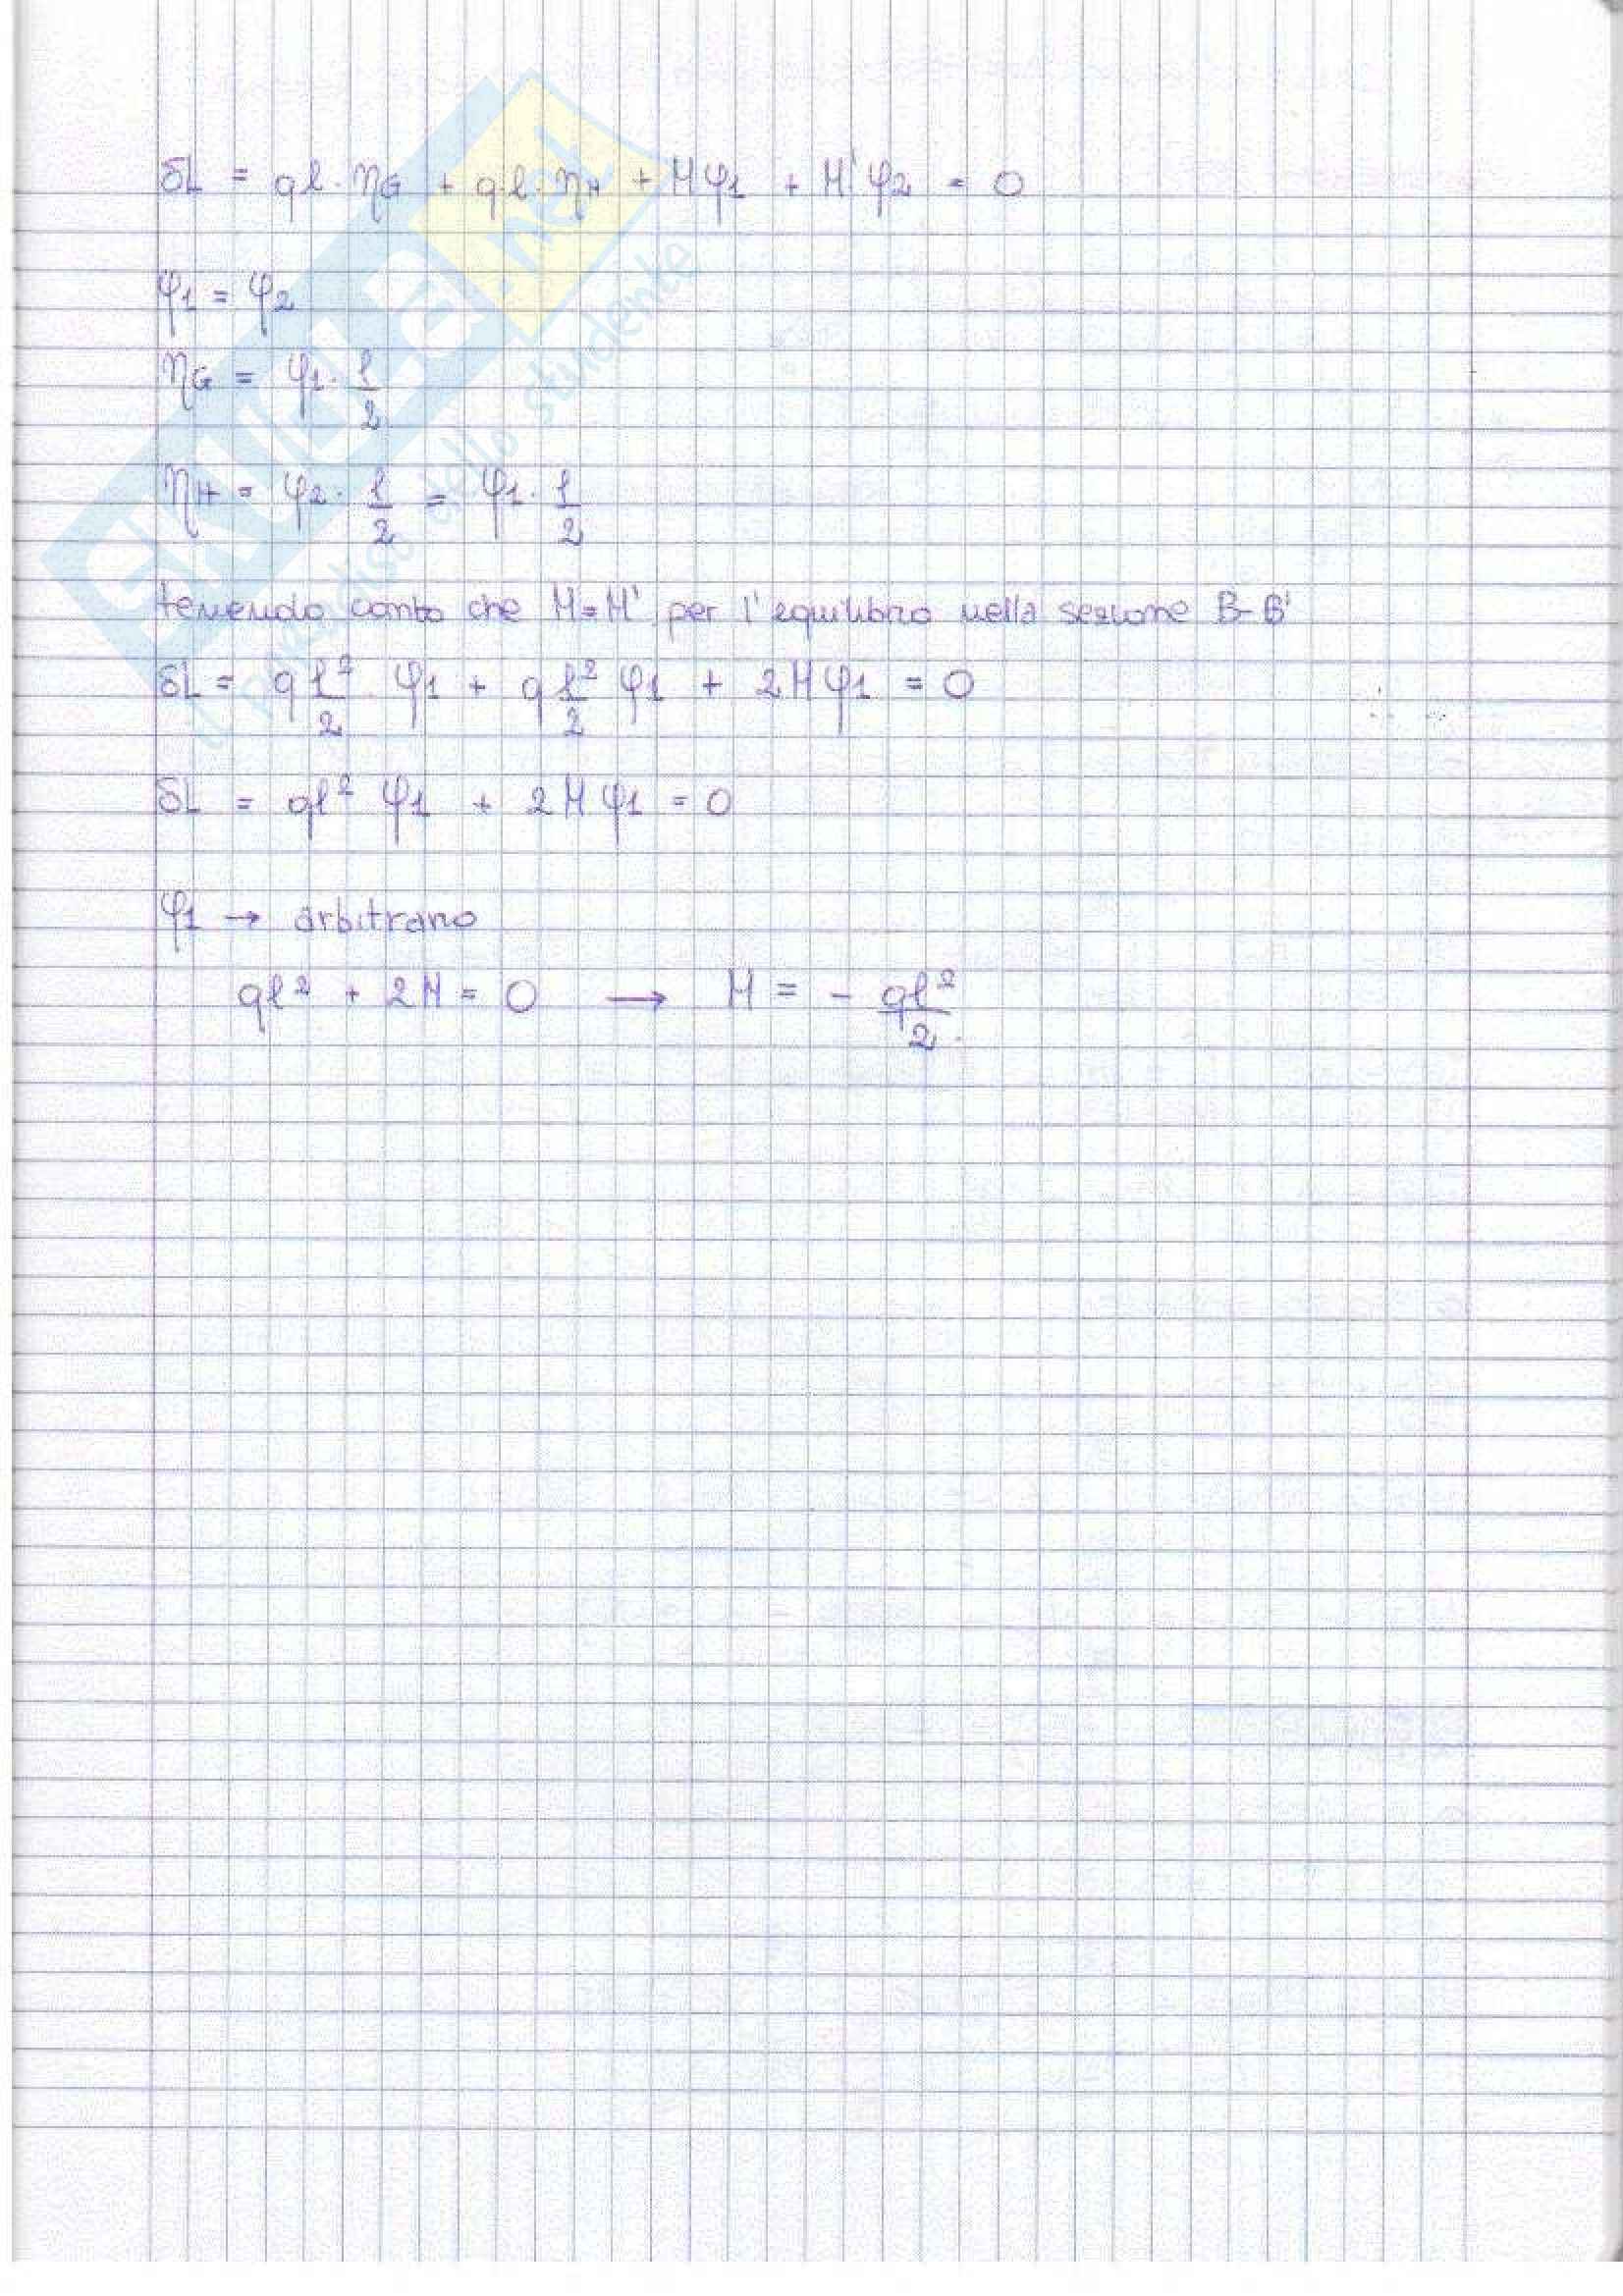 δL = ql · ηG + q·l · ηH + Mφ1 + M'φ2 = 0
φ1 = φ2
ηG = φ1 · l/2
ηH = φ2 · l/2 = φ1 · l/2
tenendo conto che M=M' per l'equilibrio nella sezione B-B'
δL = ql²/2 · φ1 + ql²/2 φ1 + 2Mφ1 = 0
δL = ql² φ1 + 2Mφ1 = 0
φ1 → arbitrario
ql² + 2M = 0 → M = - ql²/2
SKUOLA.net
il paradiso dello studente